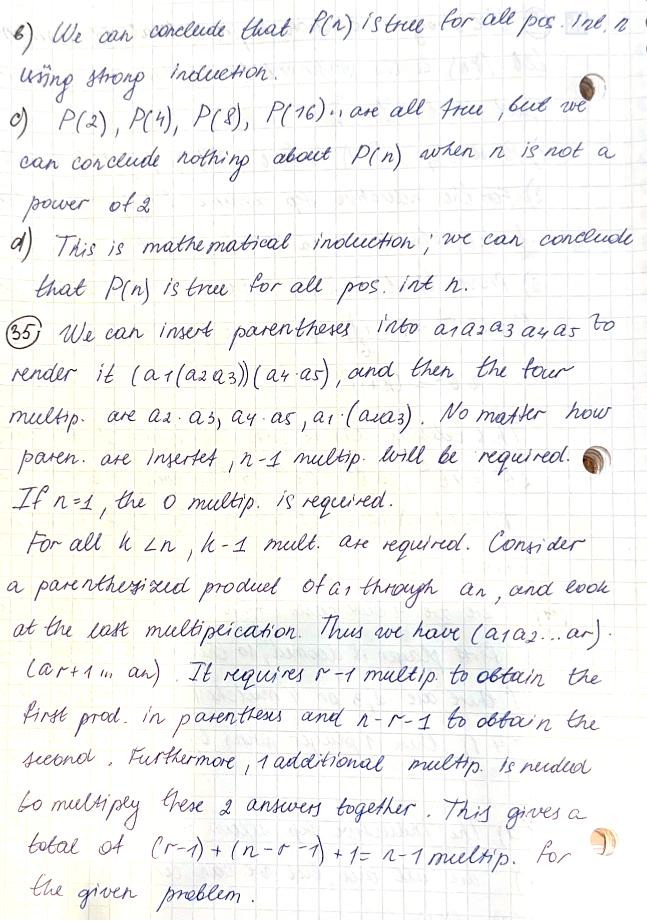 b) We can conclude that P(n) is true for all pos. int. n
using strong induction.
c) P(2), P(4), P(8), P(16).. are all true, but we
can conclude nothing about P(n) when n is not a
power of 2
d) This is mathematical induction; we can conclude
that P(n) is true for all pos. int n.
35) We can insert parentheses into a1a2a3a4a5 to
render it (a1(a2a3))(a4·a5), and then the four
multip. are a2·a3, a4·a5, a1·(a2a3). No matter how
paren. are insertet, n-1 multip. will be required.
If n=1, the 0 multip. is required.
For all k<n, k-1 mult. are required. Consider
a parenthesized product of a1 through an, and look
at the last multiplication. Thus we have (a1a2...ar)·
(ar+1 ... an). It requires r-1 multip. to obtain the
first prod. in parentheses and n-r-1 to obtain the
second. Furthermore, 1 additional multip. is needed
to multiply these 2 answers together. This gives a
total of (r-1)+(n-r-1)+1= n-1 multip. for
the given problem.